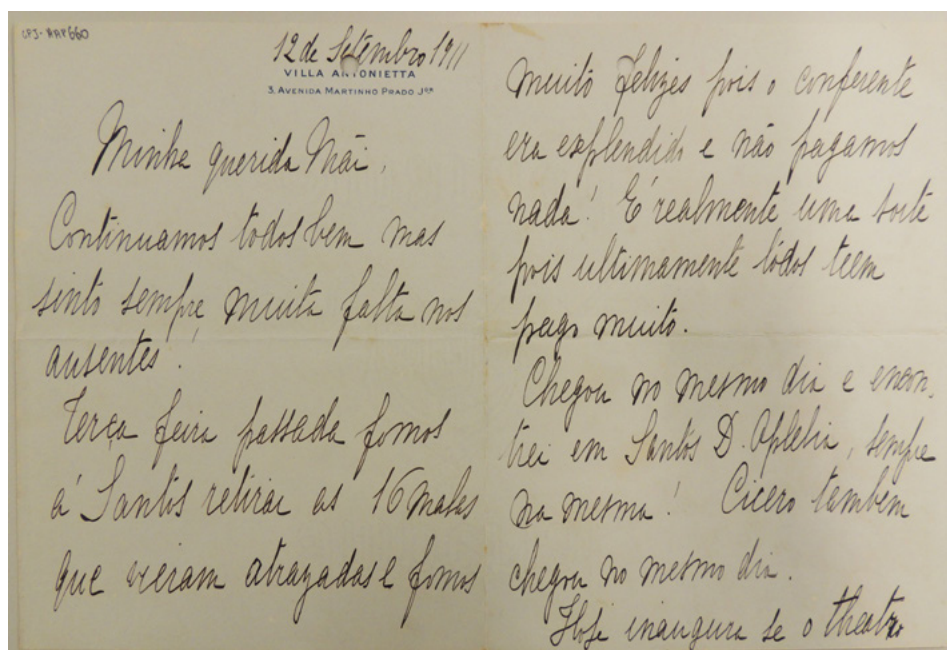 CPJ-AAP660
12 de Setembro 1911
VILLA ANTONIETTA
3. AVENIDA MARTINHO PRADO Jor
Minha querida Mãi,
Continuamos todos bem mas
sinto sempre muita falta nos
ausentes!
Terça feira passada fomos
á Santos retirar as 16 malas
que vieram atrazadas e fomos
muito felizes pois o conferente
era esplendido e não pagamos
nada! É realmente uma sorte
pois ultimamente tódos teem
pago muito.
Chegou no mesmo dia e encon-
trei em Santos D. , sempre
na mesma! Cicero tambem
chegou no mesmo dia.
Hoje inaugura se o theatro